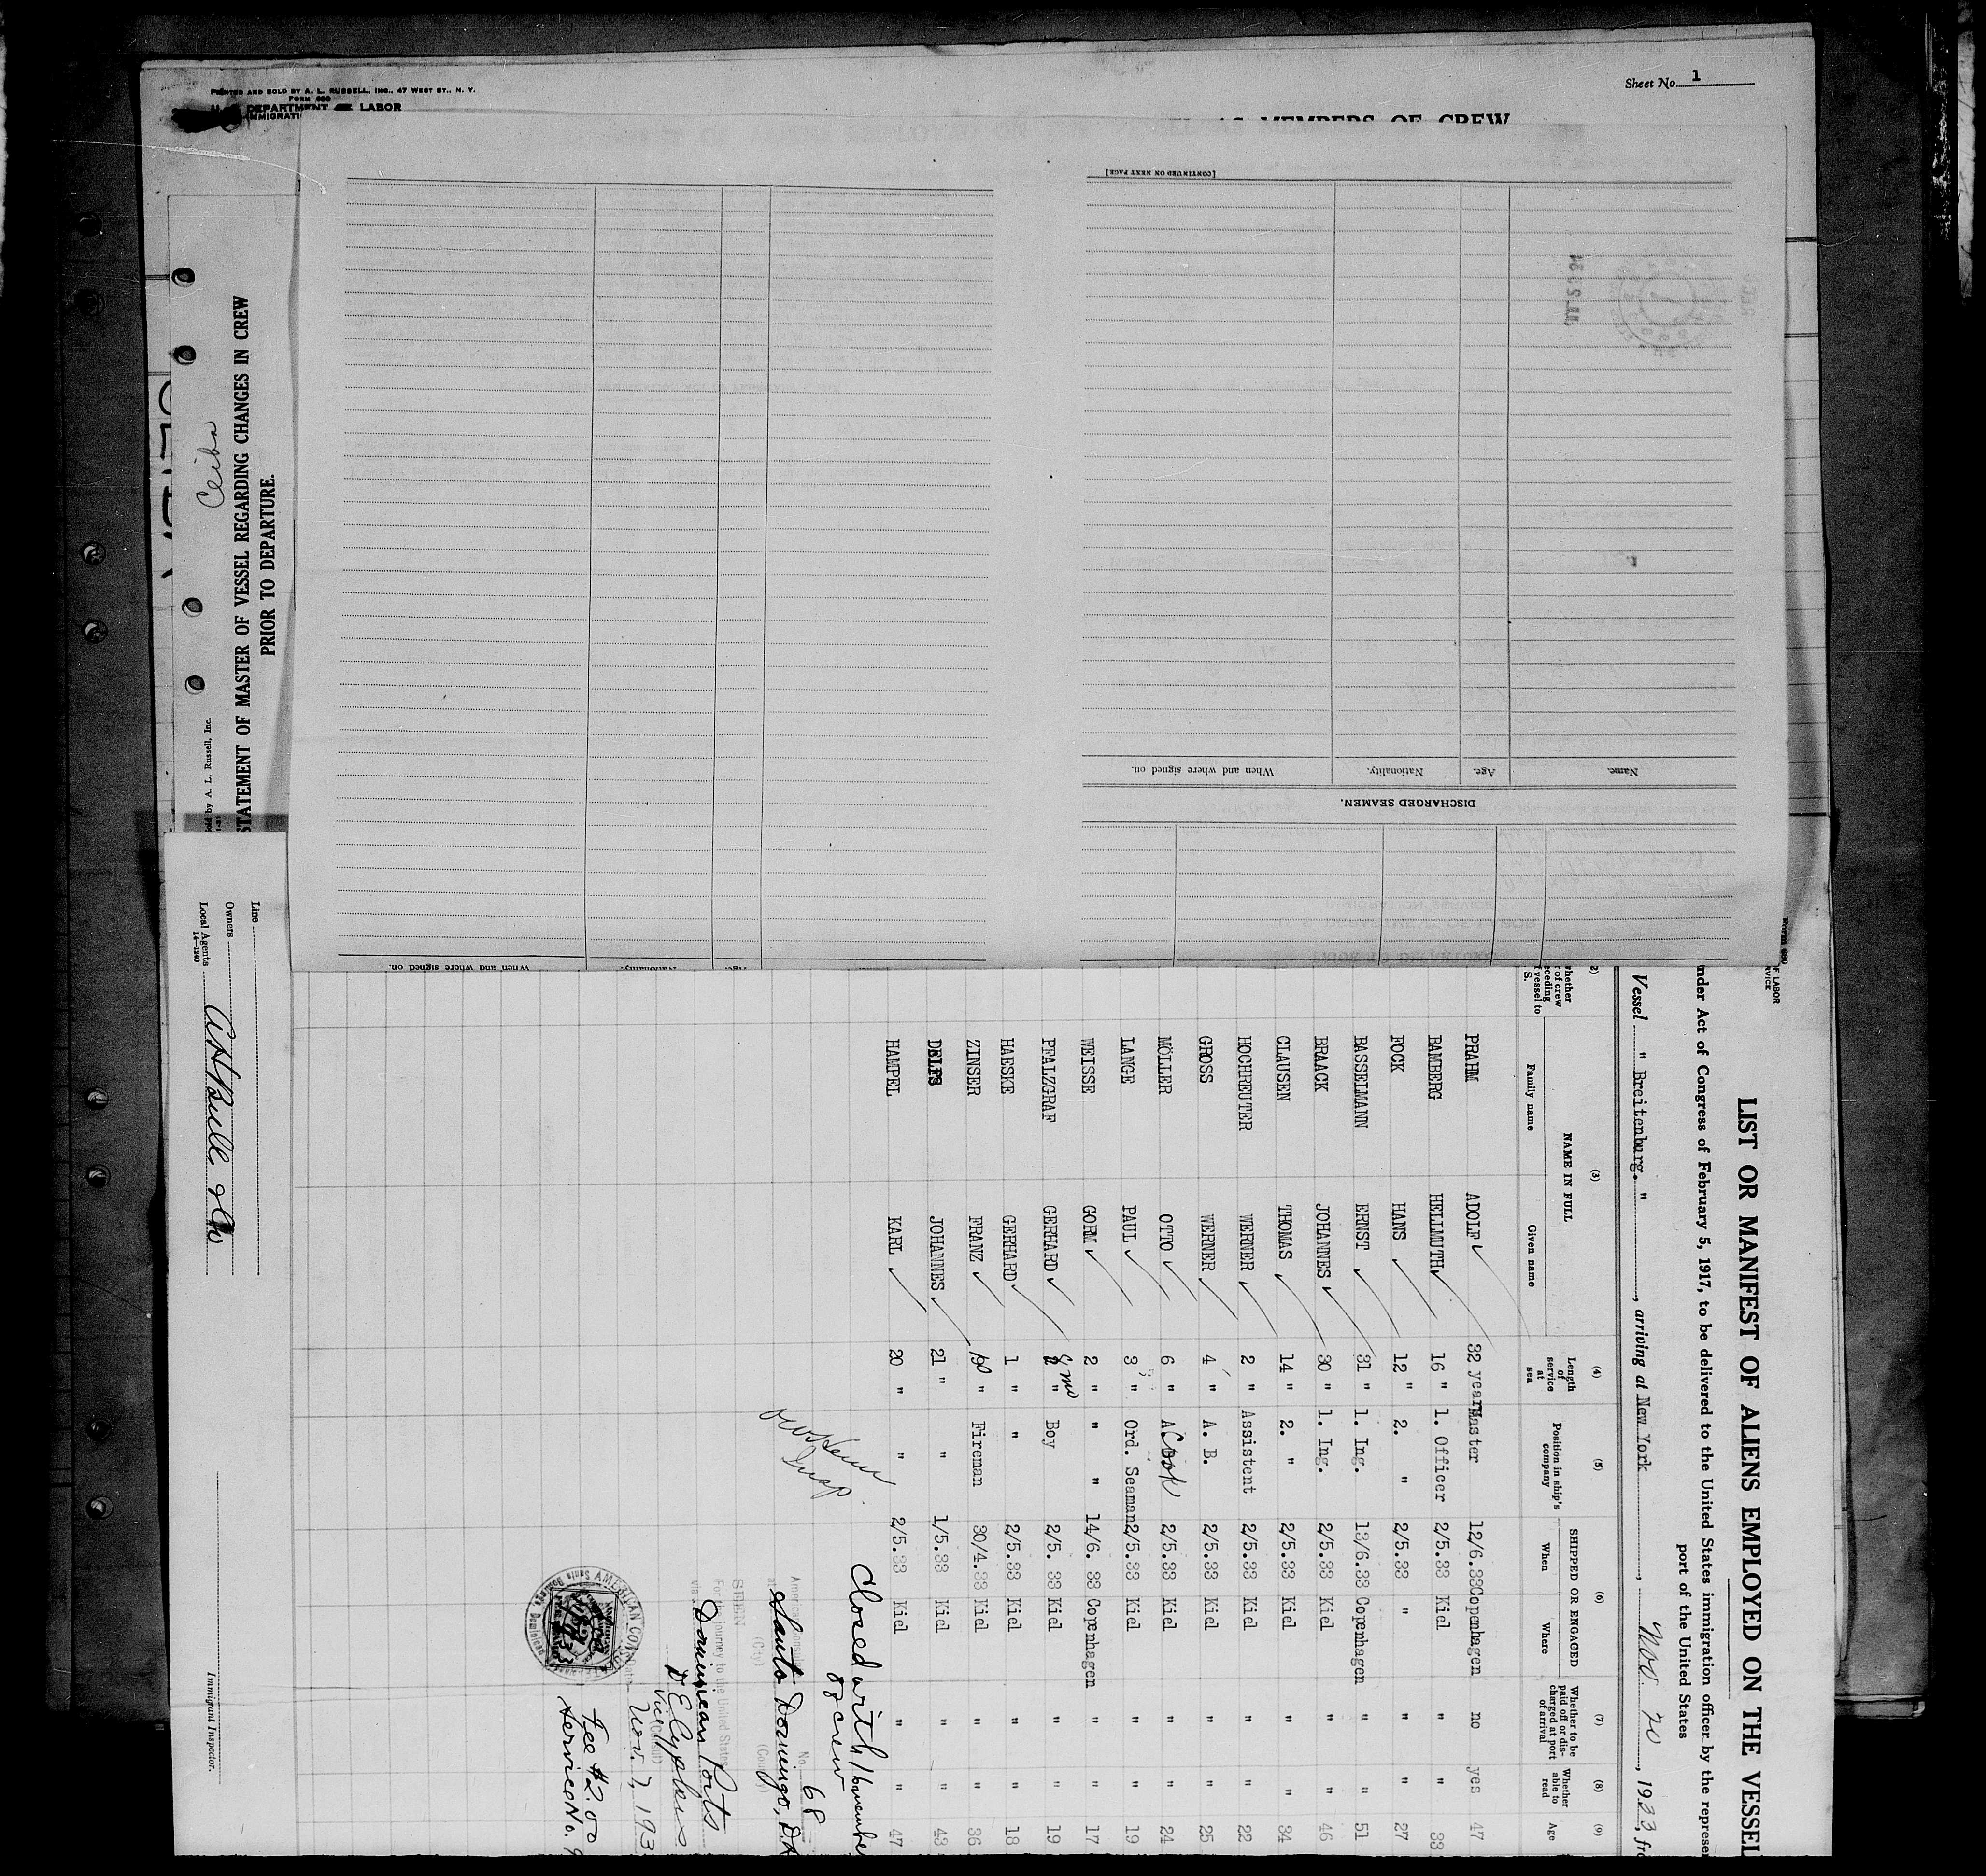 PRINTED AND SOLD BY A. L. RUSSELL, INC., 47 WEST ST., N. Y.
FORM 680
DEPARTMENT LABOR
IMMIGRATI
Sheet No. 1
AS MEMBERS OF CREW
[CONTINUED ON NEXT PAGE]
Name. Age. Nationality. When and where signed on.
DISCHARGED SEAMEN.
When and where signed on. Nationality. Age.
Ceiba
STATEMENT OF MASTER OF VESSEL REGARDING CHANGES IN CREW
PRIOR TO DEPARTURE.
Sold by A. L. Russell, Inc.
Line
Owners
Local Agents
14—1240
Immigrant Inspector.
Form 680
OF LABOR
LIST OR MANIFEST OF ALIENS EMPLOYED ON THE VESSEL
nder Act of Congress of February 5, 1917, to be delivered to the United States immigration officer by the represen
port of the United States
Vessel " Breitenburg. ", arriving at New York, Nov. 20, 1933, fr
(3) (4) (5) (6) (7) (8) (9)
NAME IN FULL
Family name Given name
Length of service at sea
Position in ship's company
SHIPPED OR ENGAGED
When Where
Whether to be paid off or discharged at port of arrival
Whether able to read
Age
PRAHM ADOLF 32 years Master 12/6.33 Copenhagen no yes 47
BAMBERG HELLMUTH 16 " 1. Officer 2/5.33 Kiel " " 33
FOCK HANS 12 " 2. " 2/5.33 " " " 27
BASSELMANN ERNST 31 " 1. Ing. 13/6.33 Copenhagen " " 51
BRAACK JOHANNES 30 " 1. Ing. 2/5.33 Kiel " " 46
CLAUSEN THOMAS 14 " 2. " 2/5.33 Kiel " " 34
HOCHREUTER WERNER 2 " Assistent 2/5.33 Kiel " " 22
GROSS WERNER 4 " A. B. 2/5.33 Kiel " " 25
MÖLLER OTTO 6 " Cook 2/5.33 Kiel " " 24
LANGE PAUL 3 " Ord. Seaman 2/5.33 Kiel " " 19
WEISSE GORM 2 " " " 14/6. 33 Copenhagen " " 17
PFALZGRAF GERHARD " Boy 2/5. 33 Kiel " " 19
HAESKE GERHARD 1 " " 2/5.33 Kiel " " 18
ZINSER FRANZ " Fireman 30/4.33 Kiel " " 36
DELFS JOHANNES 21 " " 1/5.33 Kiel " " 43
HAMPEL KARL 20 " " 2/5.33 Kiel " " 47
Closed with
crew
No. 68
Santo Domingo, D.R.
(City)
SEEN
For the journey to the United States
via
Dominican Ports
Nov. 7, 193
Fee $2.00
Service No.
AMERICAN CONSUL